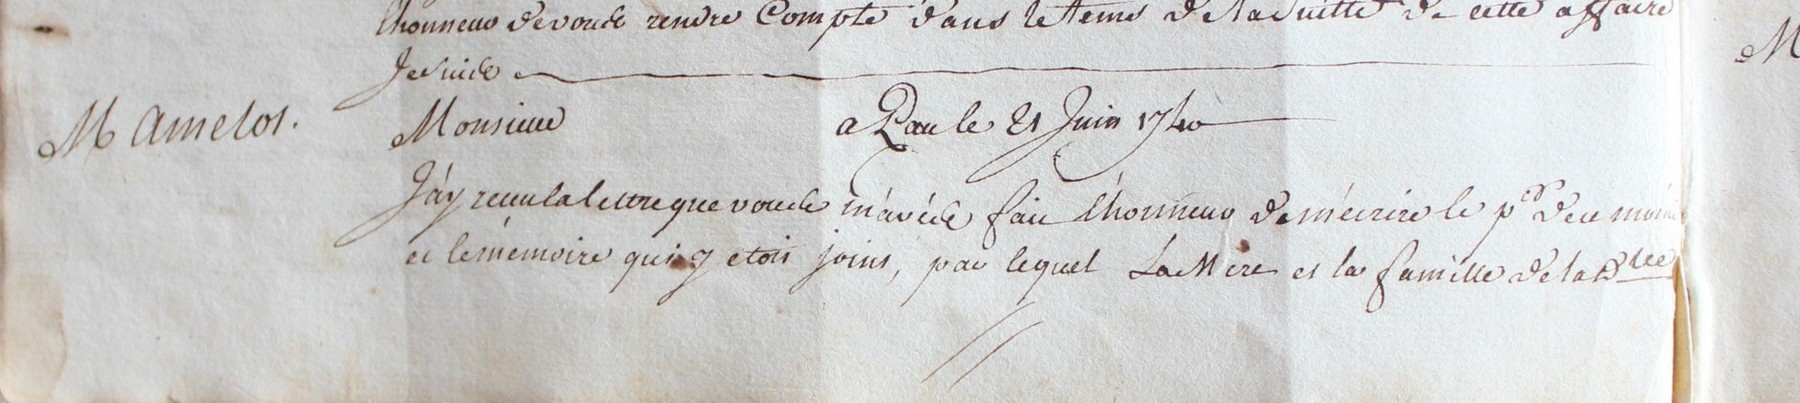 lhonneur de vous rendre Compte dans le tems de la suitte de cette affaire
Je suis
M Amelot.
Monsieur a Pau le 21 Juin 1740
J'ay receu la lettre que vous m'avés fait l'honneur de m'écrire le p.er de ce mois
et le mémoire qui y etoit joint, par lequel La Mere et la famille de la D.lle
M